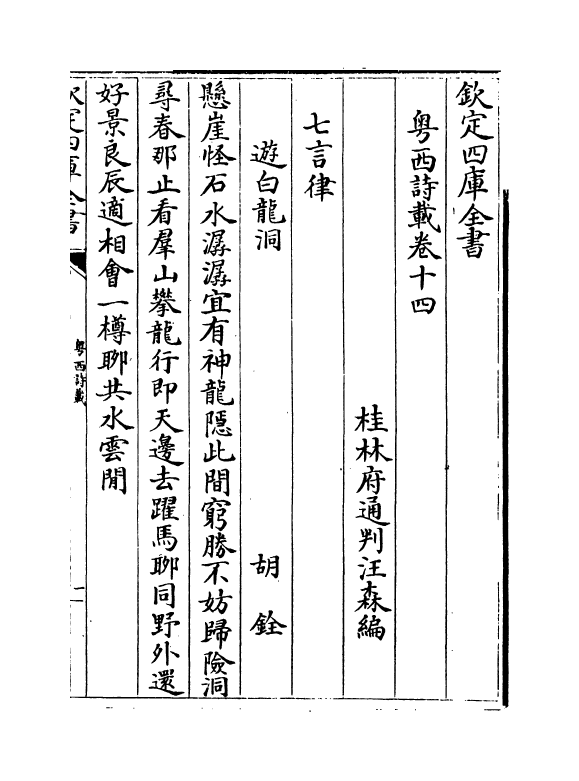 欽定四庫全書
粤西詩載卷十四
桂林府通判汪森編
七言律
遊白龍洞
胡銓
懸崖怪石水潺潺宜有神龍隱此間窮勝不妨歸險洞
尋春那止看羣山攀龍行即天邊去躍馬聊同野外還
好景良辰適相會一樽聊共水雲閒
欽定四庫全書
粤西詩載
一